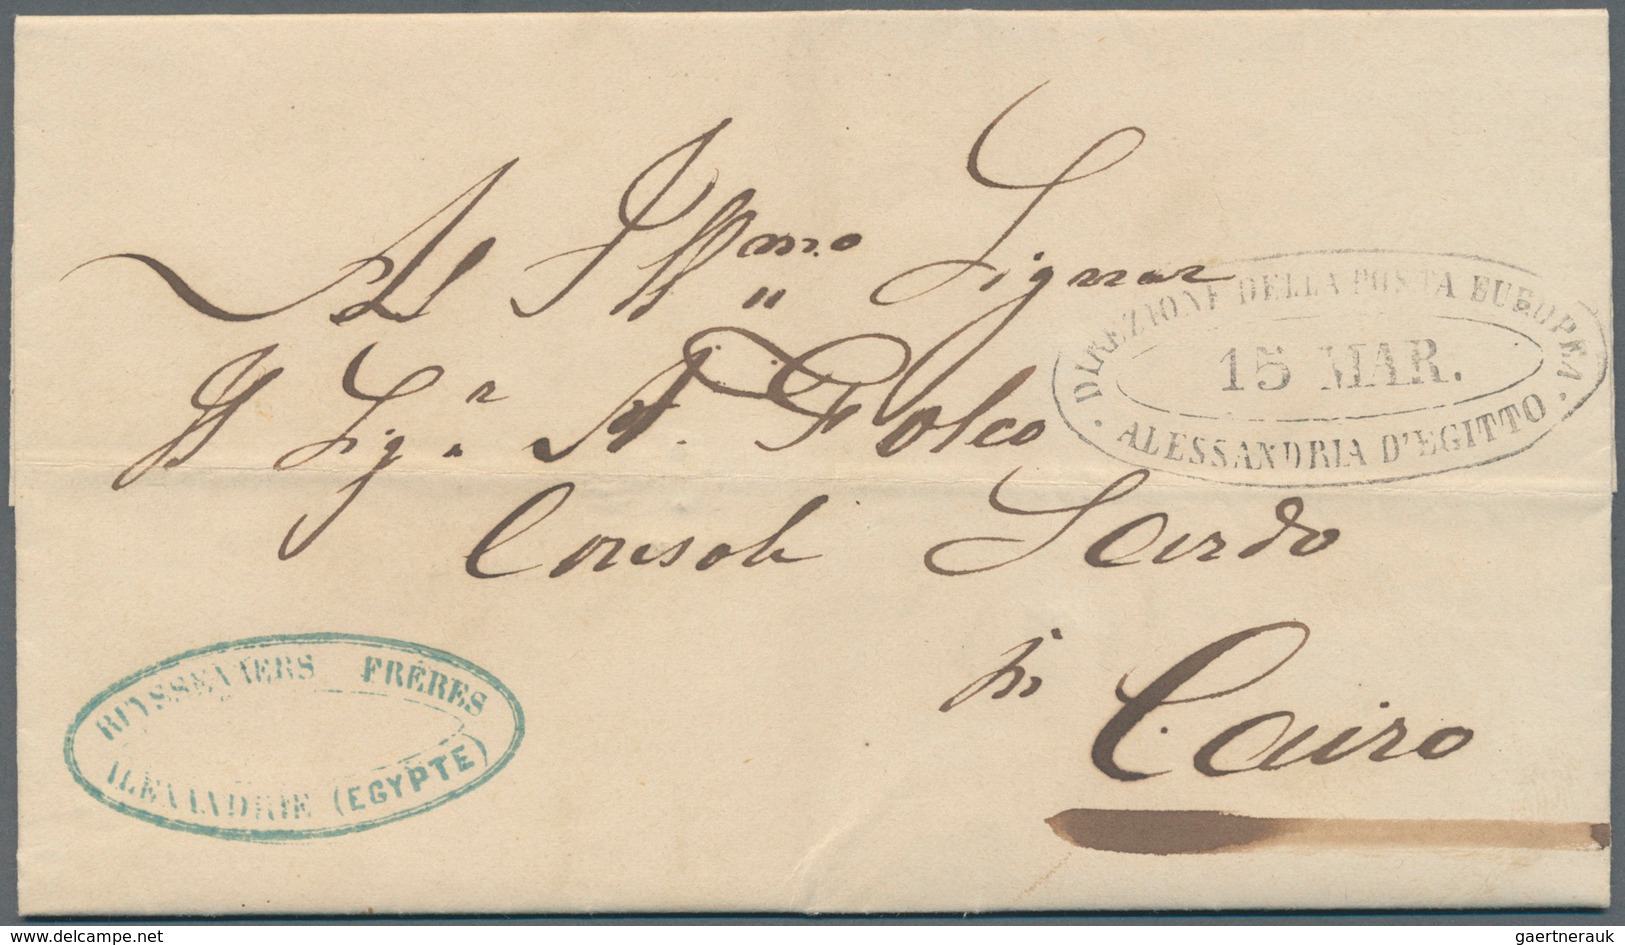 Al Illmo Signor
Il Sig.r A. Folco
Console Sardo
in Cairo
DIREZIONE DELLA POSTA EUROPEA
15 MAR.
ALESSANDRIA D'EGITTO
RUYSSENAERS FRÈRES
ALEXANDRIE (EGYPTE)
delcampe.net
gaertnerauk